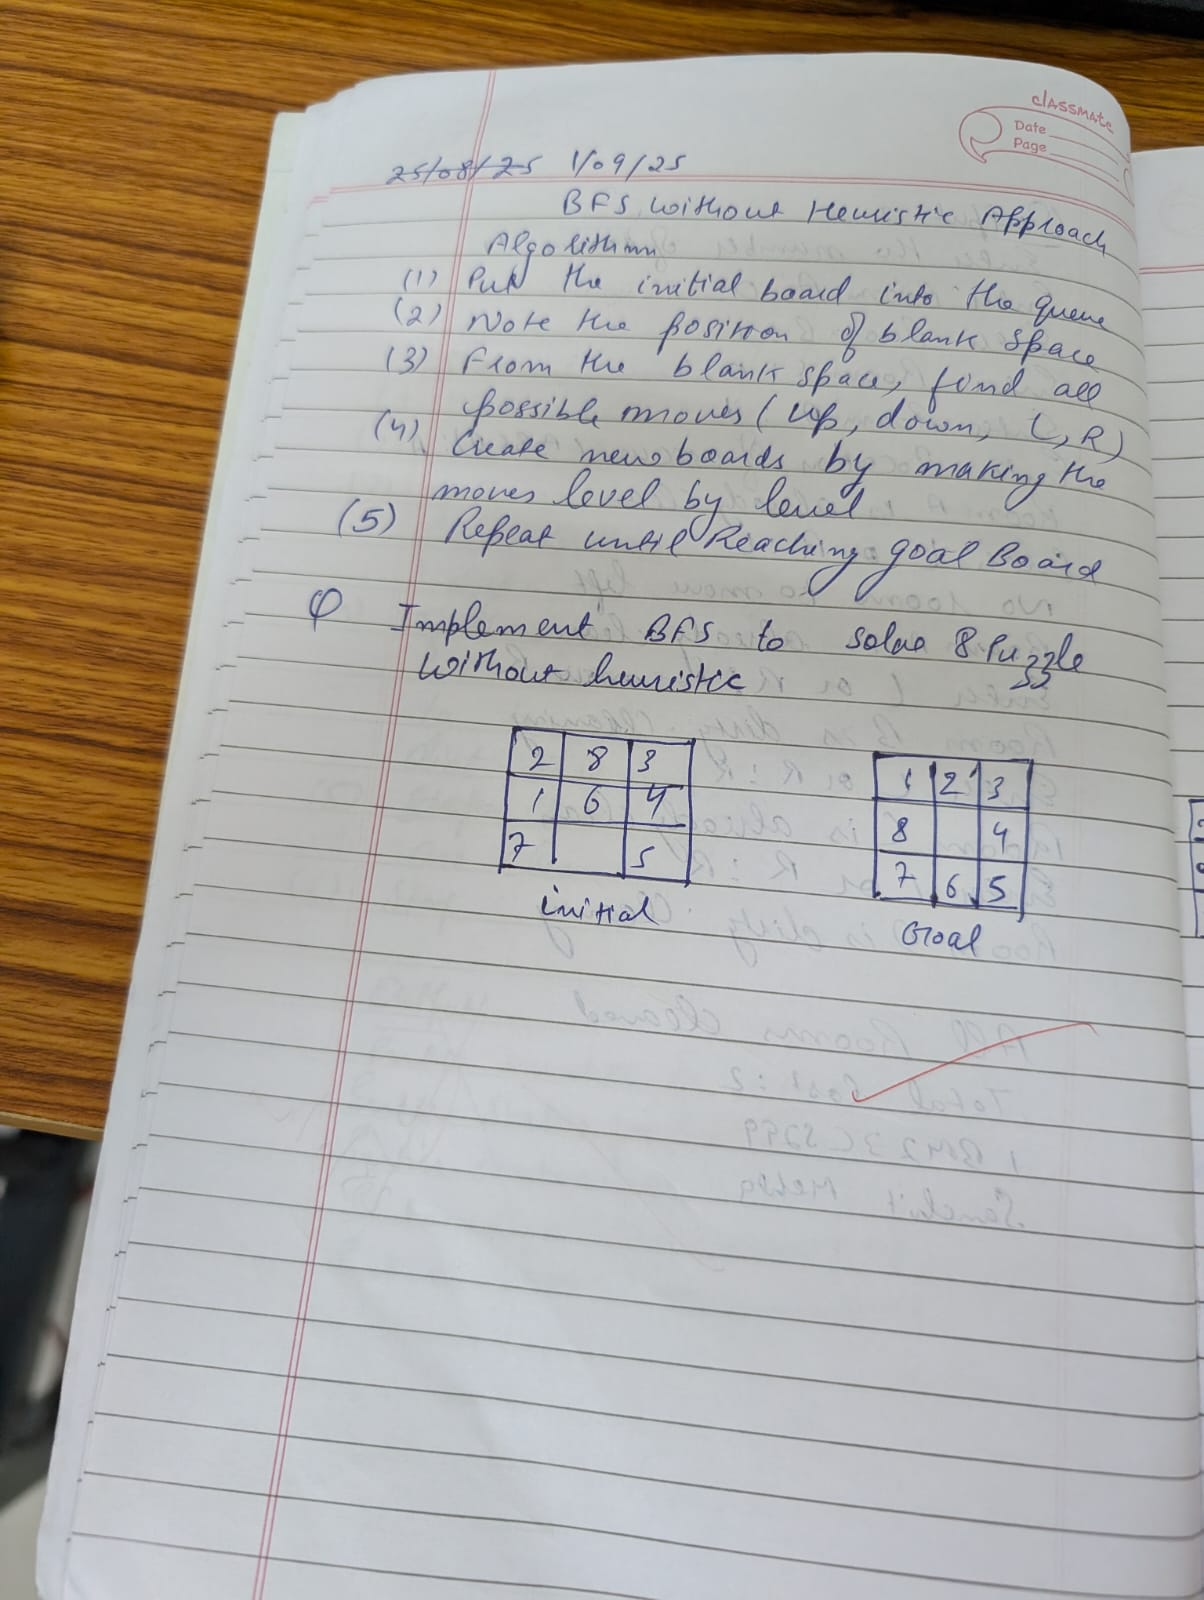 classmate
Date
Page
25/08/25 1/09/25
BFS without Heuristic Approach
Algorithm
(1) Put the initial board into the queue
(2) Note the position of blank space
(3) From the blank space, find all
possible moves (up, down, L, R)
(4) Create new boards by making the
moves level by level
(5) Repeat until Reaching goal Board
Q Implement BFS to solve 8 Puzzle
without heuristic
2 8 3
1 6 4
7 5
initial
1 2 3
8 4
7 6 5
Goal